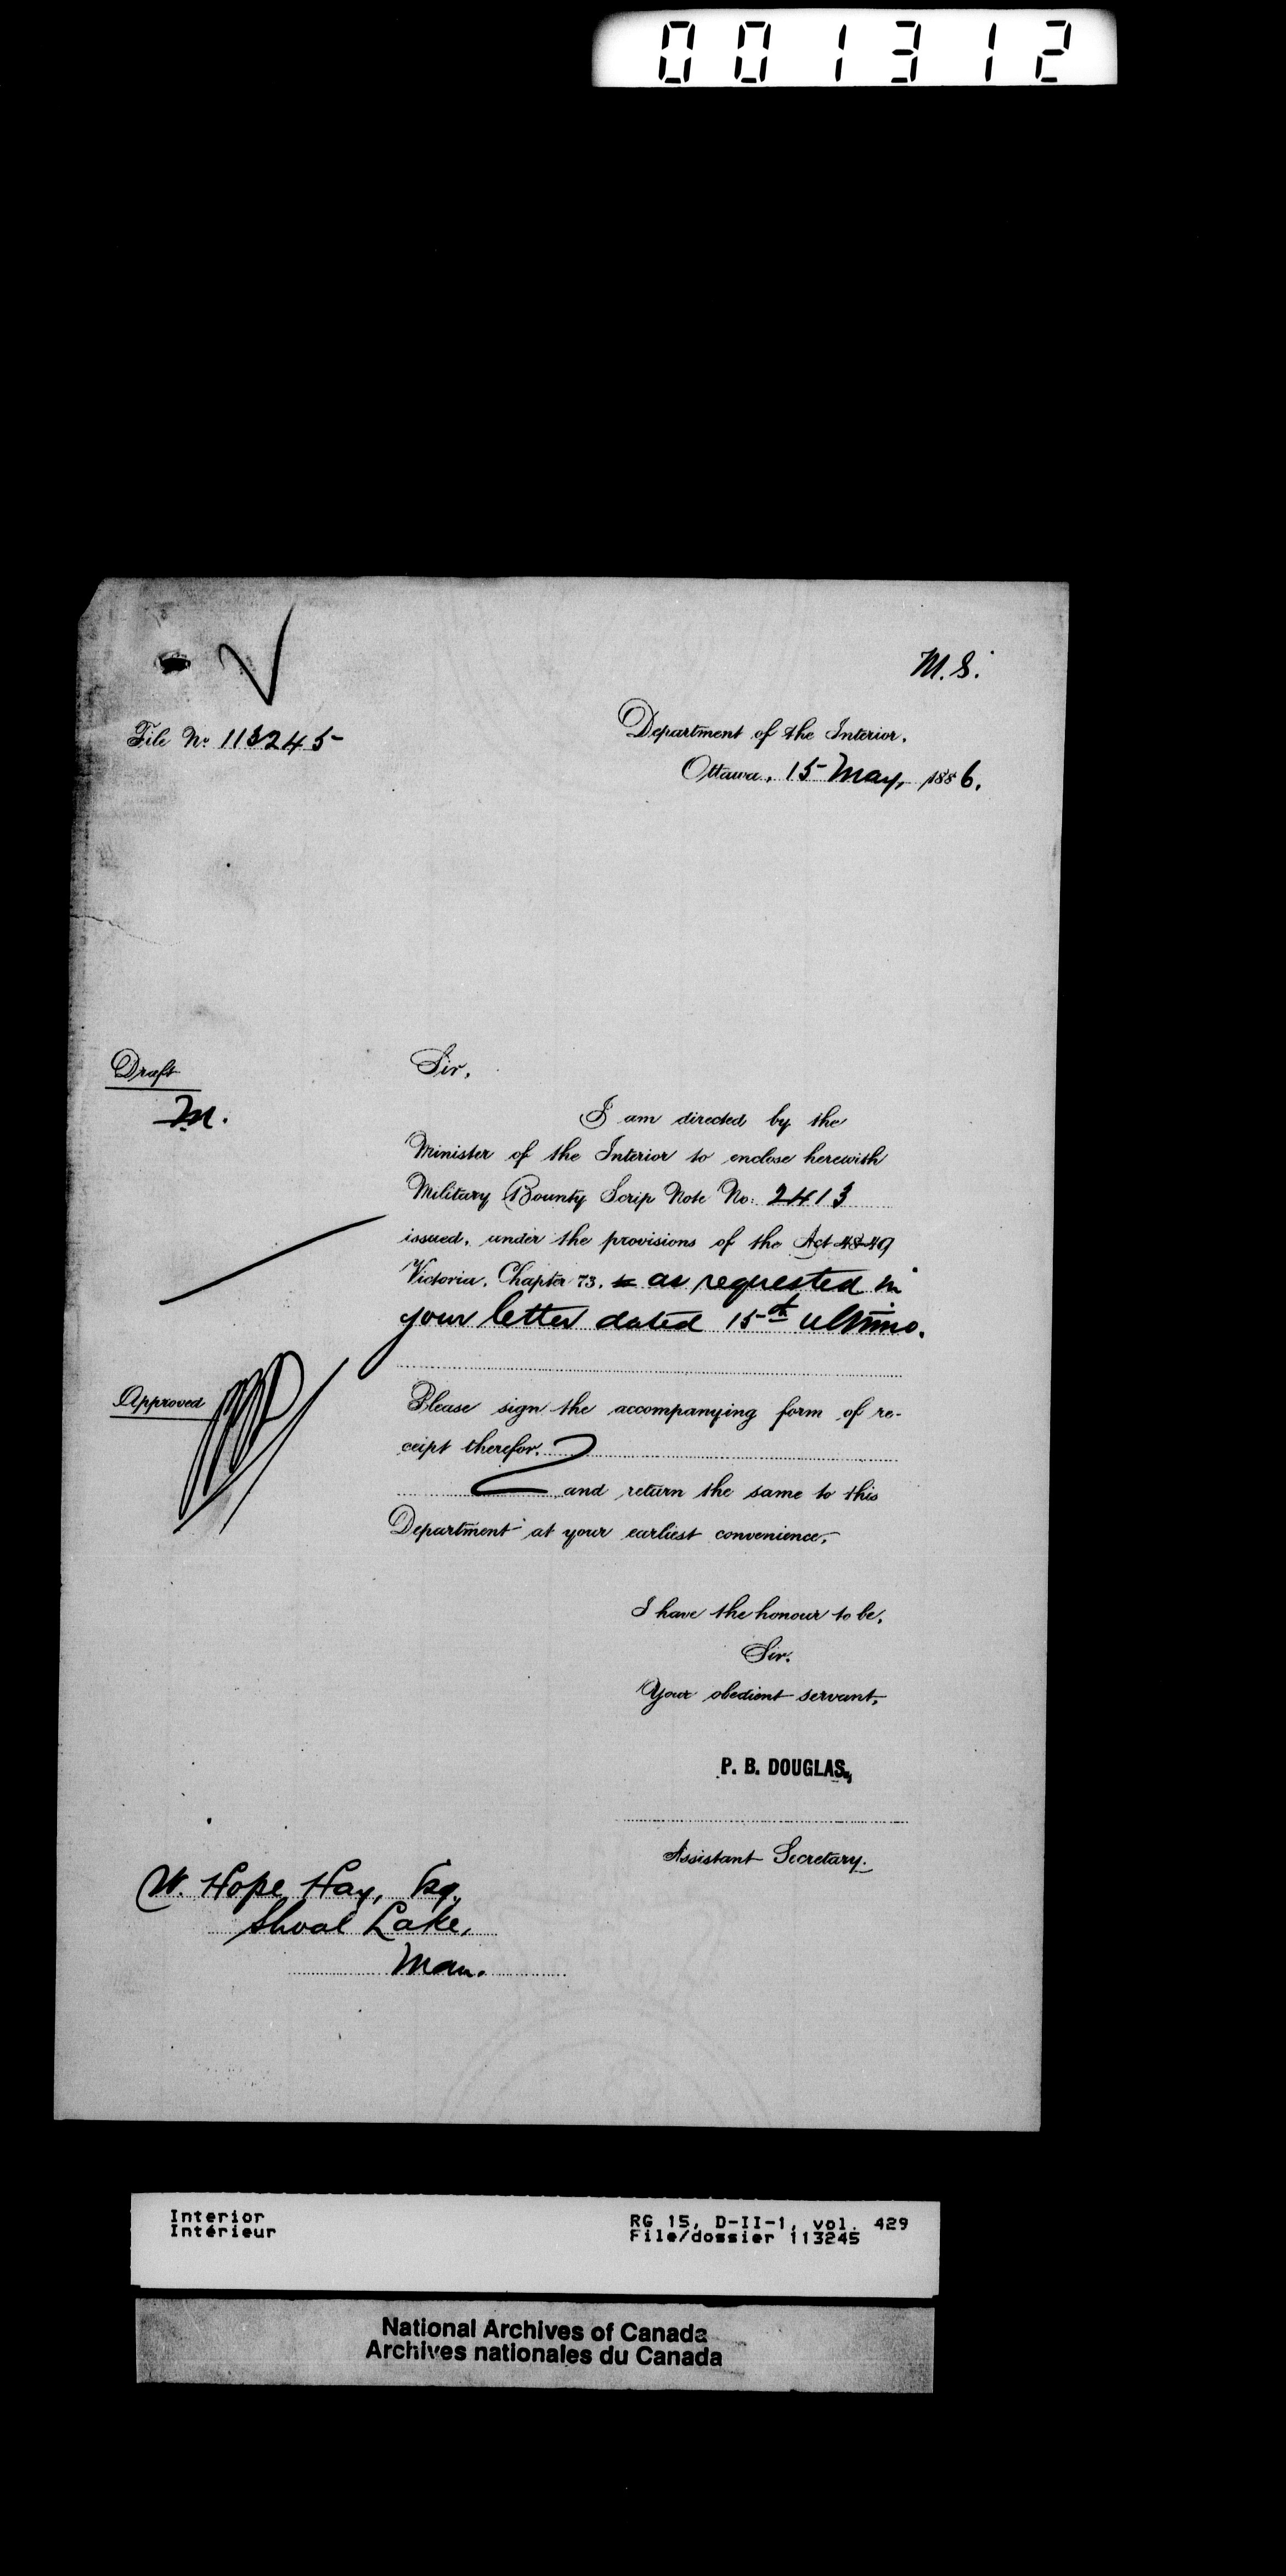 001312
M. S.
File No. 113245
Department of the Interior,
Ottawa, 15 May, 1886.
Draft
M.
Sir,
I am directed by the
Minister of the Interior to enclose herewith
Military Bounty Scrip Note No: 2413
issued, under the provisions of the Act 48-49
Victoria, Chapter 73, as requested in
your letter dated 15th ultimo.
Approved
Please sign the accompanying form of re-
ceipt therefor,
and return the same to this
Department at your earliest convenience,
I have the honour to be,
Sir,
Your obedient servant,
P. B. DOUGLAS,
Assistant Secretary.
W. Hope Hay, Esq.
Shoal Lake,
Man.
Interior
Intérieur
RG 15, D-II-1, vol. 429
File/dossier 113245
National Archives of Canada
Archives nationales du Canada